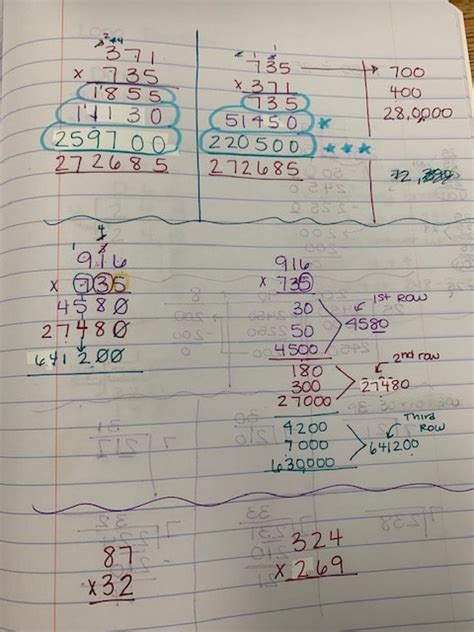 371
x 735
1855
11130
259700
272685
735 → 700
x 371 400
735 28,0000
51450 ★
220500 ★★★
272685
916
x 735
4580
27480
641200
916
x 735
30 1st Row
50 4580
4500
180 2nd row
300 27480
27000
4200 Third Row
7000 641200
630,000
87
x32
324
x269